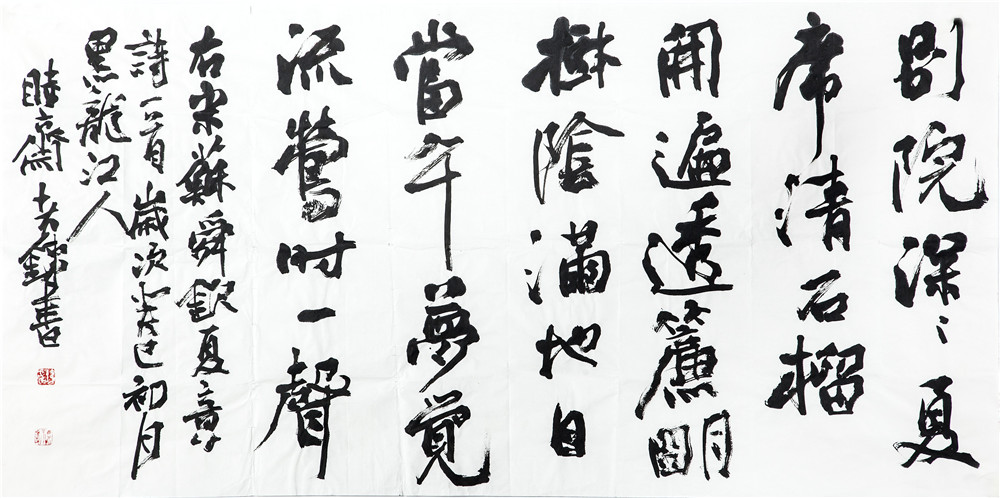 別院深〻夏
席清石榴
開遍透簾明
樹陰滿地日
當午夢覺
流鶯时一聲
右宋蘇舜欽夏意
詩一首歲次癸巳初月
黑龍江人
睦齋書